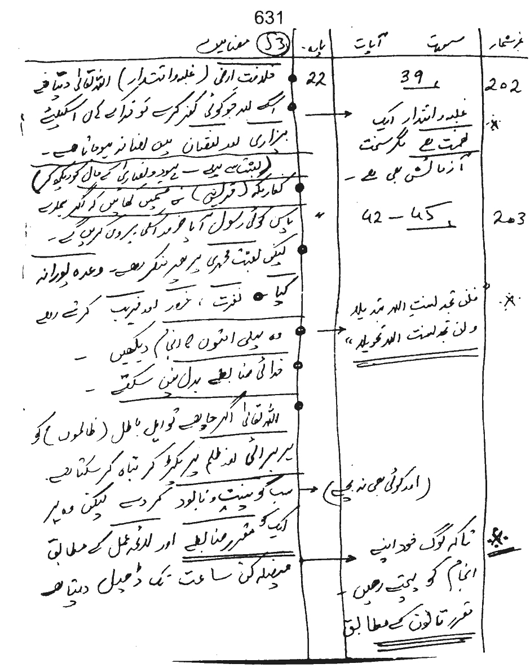 631
نمبر شمار
سمت
آیات
پارہ
53 مضامین
202
39
22
خلافت ارضی (غلبہ و اقتدار) اللہ تعالیٰ دیتا ہے
اسکے بعد جو کوئی کفر کرے تو خدا کے ہاں اسکیلئے
بیزاری اور نقصان میں اضافہ ہو جاتا ہے۔
غلبہ و اقتدار ایک
نعمت ہے مگر سخت
آزمائش بھی ہے۔
(بعثت سے پہلے - یہود و نصاریٰ کے حال کو دیکھ کر)
کفار مکہ (قریش) نے قسمیں کھائیں کہ اگر ہمارے
پاس کوئی رسول آیا تو ہم اسکی پیروی کریں گے۔
203
42 - 45
〃
لیکن بعثت محمدی پر بھی منکر رہے۔ وعدہ پورا نہ
کیا۔ نفرت، غرور اور فریب کرتے رہے
وہ پہلی امتوں کا انجام دیکھیں۔
خدائی ضابطے بدل نہیں سکتے۔
"فلن تجد لسنت اللہ تبدیلا
ولن تجد لسنت اللہ تحویلا"
اللہ تعالیٰ اگر چاہے تو اہل باطل (ظالموں) کو
ہر برائی اور ظلم پر پکڑ کر تباہ کر سکتا ہے۔
سب کو نیست و نابود کر دے لیکن وہ ہر
(اور کوئی بھی نہ بچے)
ایک کو مقررہ ضابطے اور لائحہ عمل کے مطابق
فیصلہ کن ساعت تک ڈھیل دیتا ہے
تاکہ لوگ خود اپنے
انجام کو پہنچتے رہیں۔
مقرر قانون کے مطابق